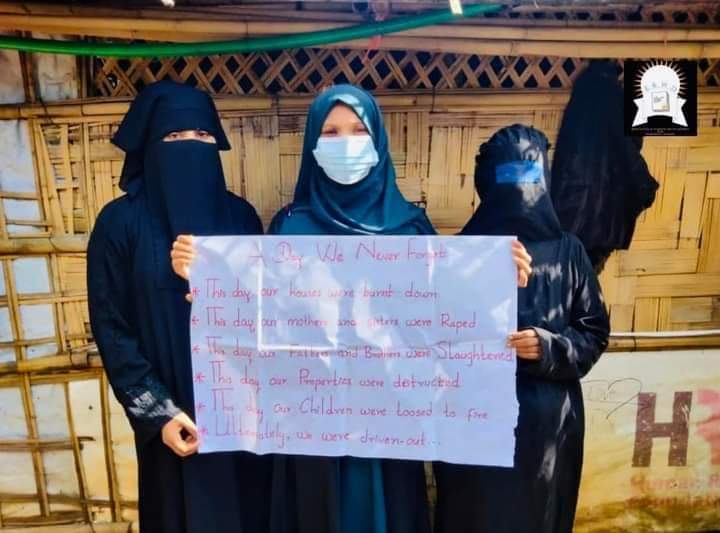 A Day We Never Forget
* This day our houses were burnt down
* This day our mothers and sisters were Raped
* This day our Fathers and Brothers were Slaughtered
* This day our Properties were destructed
* This day our Children were toosed to fire
* Ultimately, we were driven-out...
H
Human